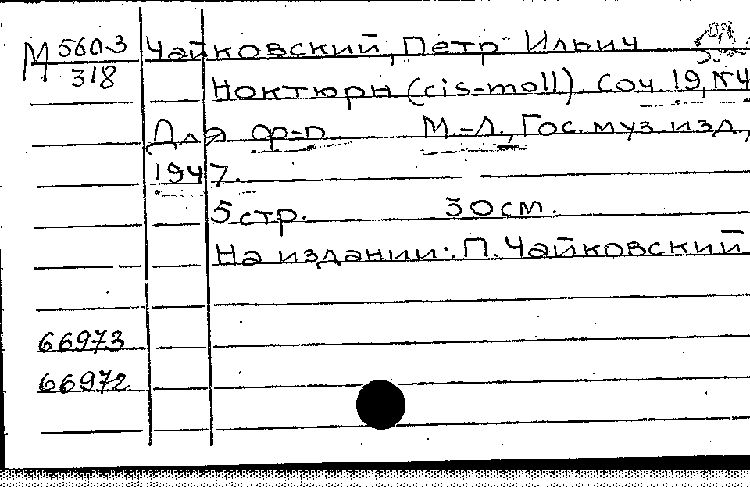 М 560-3 Чайковский, Петр Ильич
318
Ноктюрн (cis-moll). Соч 19, №4
Для ф-п. М.-Л., Гос. муз. изд.,
1947.
5 стр. 30 см.
На издании: П. Чайковский
66973
66972